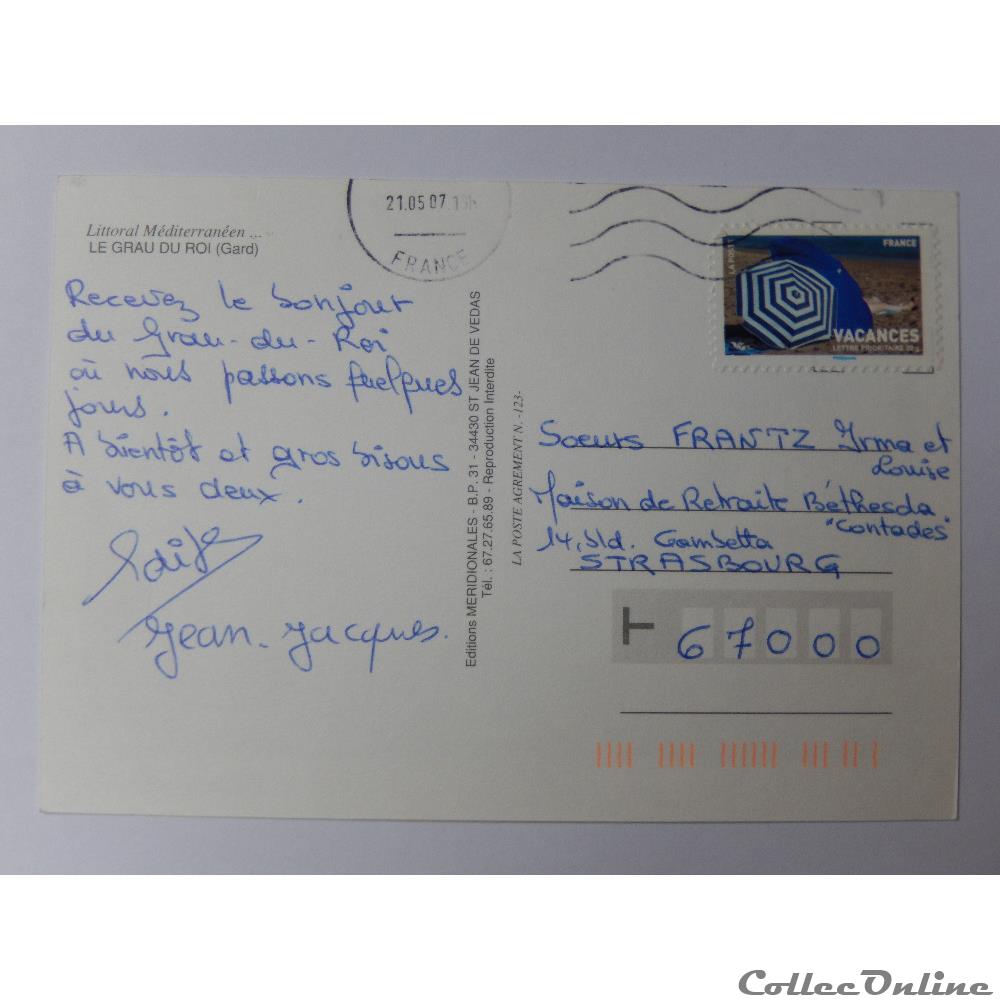 Littoral Méditerranéen ...
LE GRAU DU ROI (Gard)
21.05.07
FRANCE
LA POSTE
FRANCE
VACANCES
LETTRE PRIORITAIRE 20g
Recevez le bonjour
du Grau-du-Roi
où nous passons quelques
jours.
A bientôt et gros bisous
à vous deux.
Jean-Jacques.
Editions MERIDIONALES - B.P. 31 - 34430 ST JEAN DE VEDAS
Tél. : 67.27.65.89 - Reproduction Interdite
LA POSTE AGREMENT N. -123-
Soeurs FRANTZ Irma et
Louise
Maison de Retraite Béthesda
"Contades"
14, bld. Gambetta
STRASBOURG
67000
CollecOnline